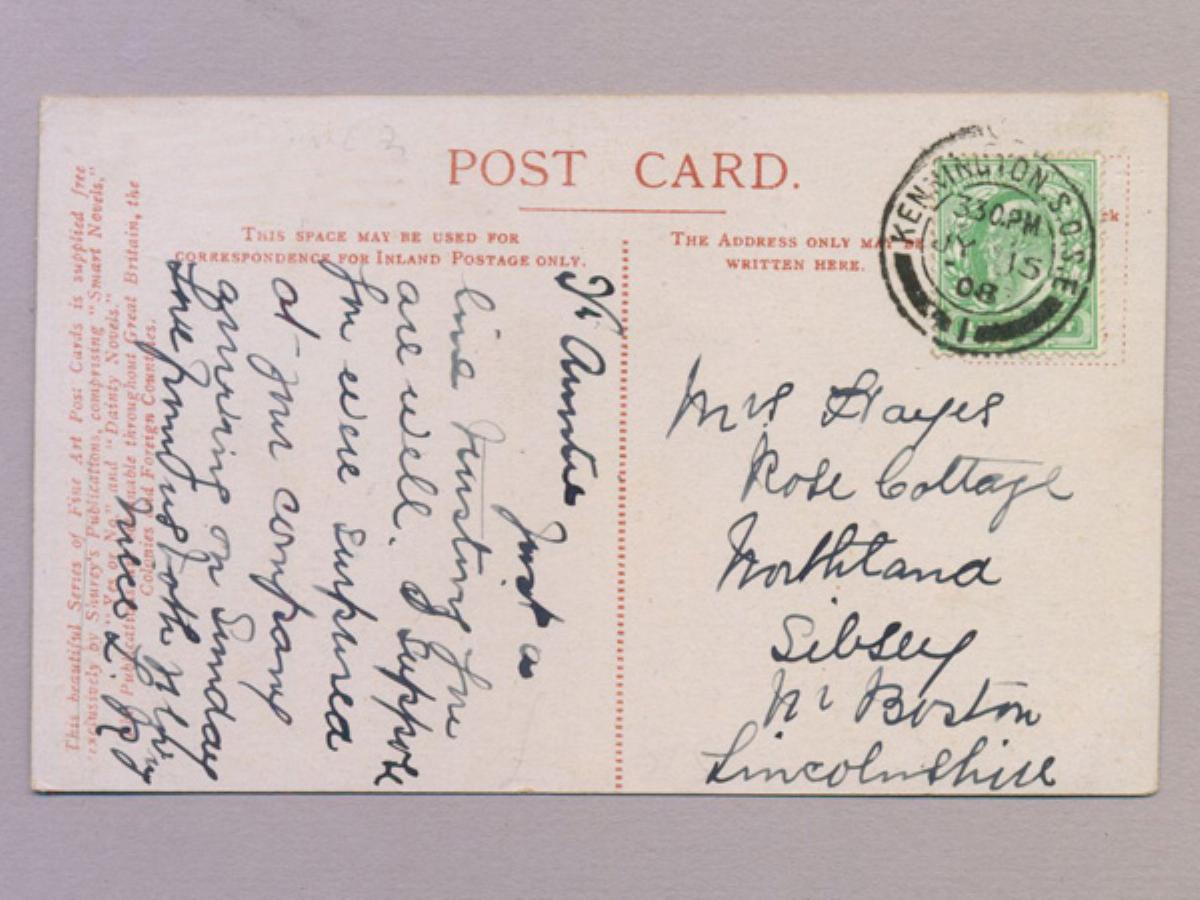 POST CARD.
THIS SPACE MAY BE USED FOR
CORRESPONDENCE FOR INLAND POSTAGE ONLY.
THE ADDRESS ONLY MAY BE
WRITTEN HERE.
KENNINGTON S.O. S.E
3 30 PM
JY 15
08
1
Dr Auntie
Just a
line trusting you
are well. I suppose
you were surprised
at your company
arriving on Sunday
Love from us both yr lov
niece L.
Mrs Hayes
Rose Cottage
Northland
Sibsey
Nr Boston
Lincolnshire
This beautiful Series of Fine Art Post Cards is supplied free
exclusively by Shurey's Publications, comprising "Smart Novels,"
"Yes or No," and "Dainty Novels."
Publications obtainable throughout Great Britain, the
Colonies and Foreign Countries.